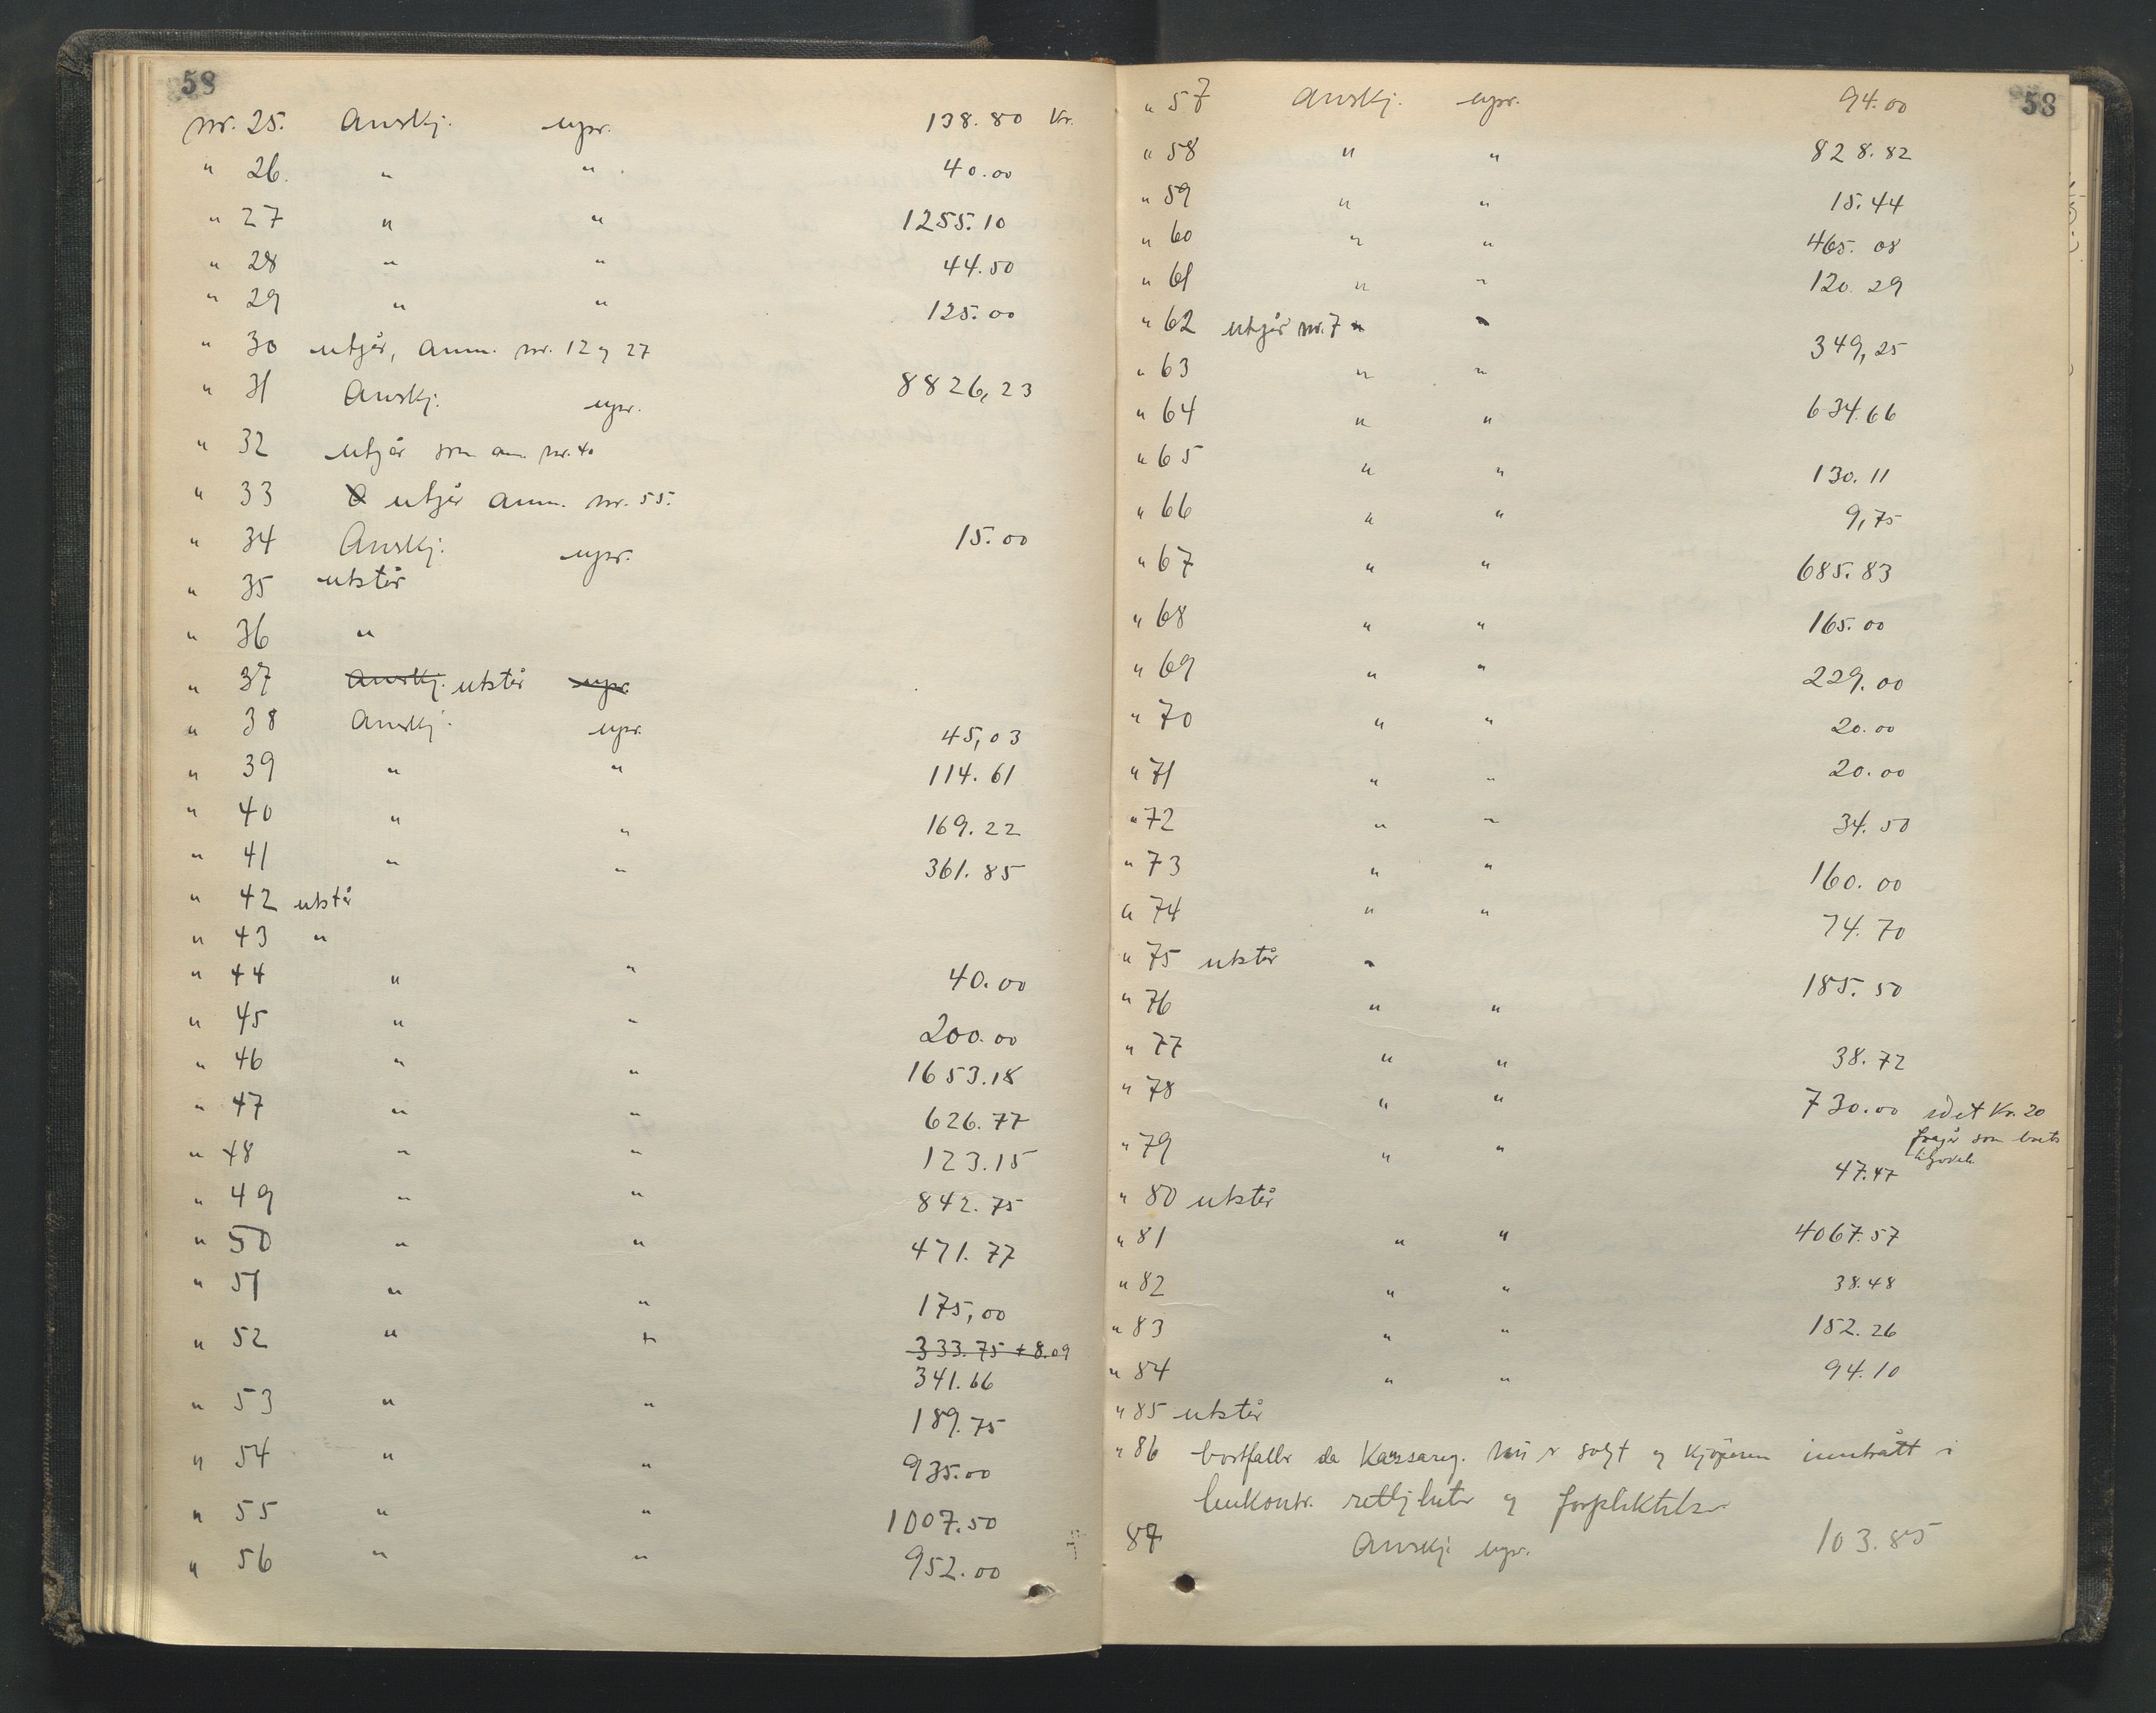 58
nr. 25. Anrskj. upr. 138.80 Kr.
" 26. " " 40.00
" 27 " " 1255.10
" 28 " " 44.50
" 29 " " 125.00
" 30 utgår, anm. nr. 12 og 27
" 31 Anrskj. upr. 8826,23
" 32 utgår som anm. nr. 40
" 33 utgår anm. nr. 55.
" 34 Anrskj. upr. 15.00
" 35 utstår
" 36 "
" 37 Anrskj. utstår upr.
" 38 Anrskj. upr. 45,03
" 39 " " 114.61
" 40 " " 169.22
" 41 " " 361.85
" 42 utstår
" 43 "
" 44 " " 40.00
" 45 " " 200.00
" 46 " " 1653.18
" 47 " " 626.77
" 48 " " 123.15
" 49 " " 842.75
" 50 " " 471.77
" 51 " " 175,00
" 52 " " 333.75 + 8.09
341.66
" 53 " " 189.75
" 54 " " 935.00
" 55 " " 1007.50
" 56 " " 952.00
58
" 57 Anrskj. upr. 94.00
" 58 " " 828.82
" 59 " " 15.44
" 60 " " 465.08
" 61 " " 120.29
" 62 utgår nr. 7 " "
" 63 " " 349,25
" 64 " " 634.66
" 65 " " 130.11
" 66 " " 9,75
" 67 " " 685.83
" 68 " " 165.00
" 69 " " 229.00
" 70 " " 20.00
" 71 " " 20.00
" 72 " " 34.50
" 73 " " 160.00
" 74 " " 74.70
" 75 utstår "
" 76 " " 185.50
" 77 " " 38.72
" 78 " " 730.00 idet Kr. 20
fragår som
" 79 " " 47.47
" 80 utstår
" 81 " " 4067.57
" 82 " " 38.48
" 83 " " 152.26
" 84 " " 94.10
" 85 utstår
" 86 bortfaller da Kassareg. nu er solgt og kjöperen inntrått i
leiekontr. rettigheter og forpliktelser
87 Anrskj. upr. 103.85